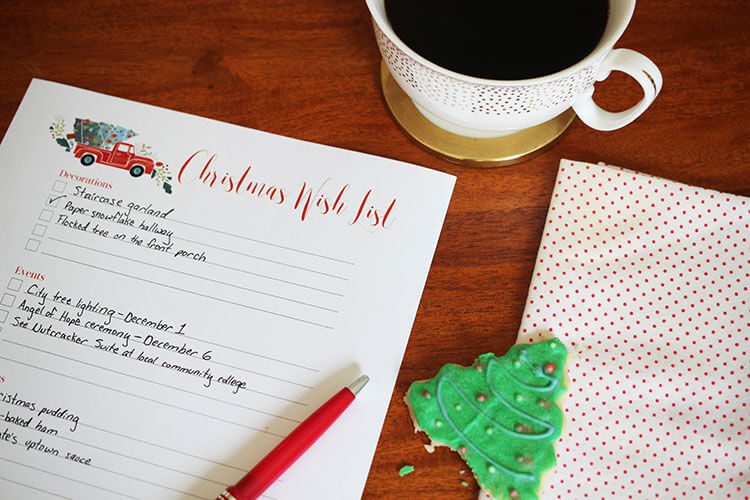 Christmas Wish List
Decorations
Staircase garland
Paper snowflake hallway
Flocked tree on the front porch
Events
City tree lighting - December 1
Angel of Hope ceremony - December 6
See Nutcracker Suite at local community college
pudding
-baked ham
uptown sauce